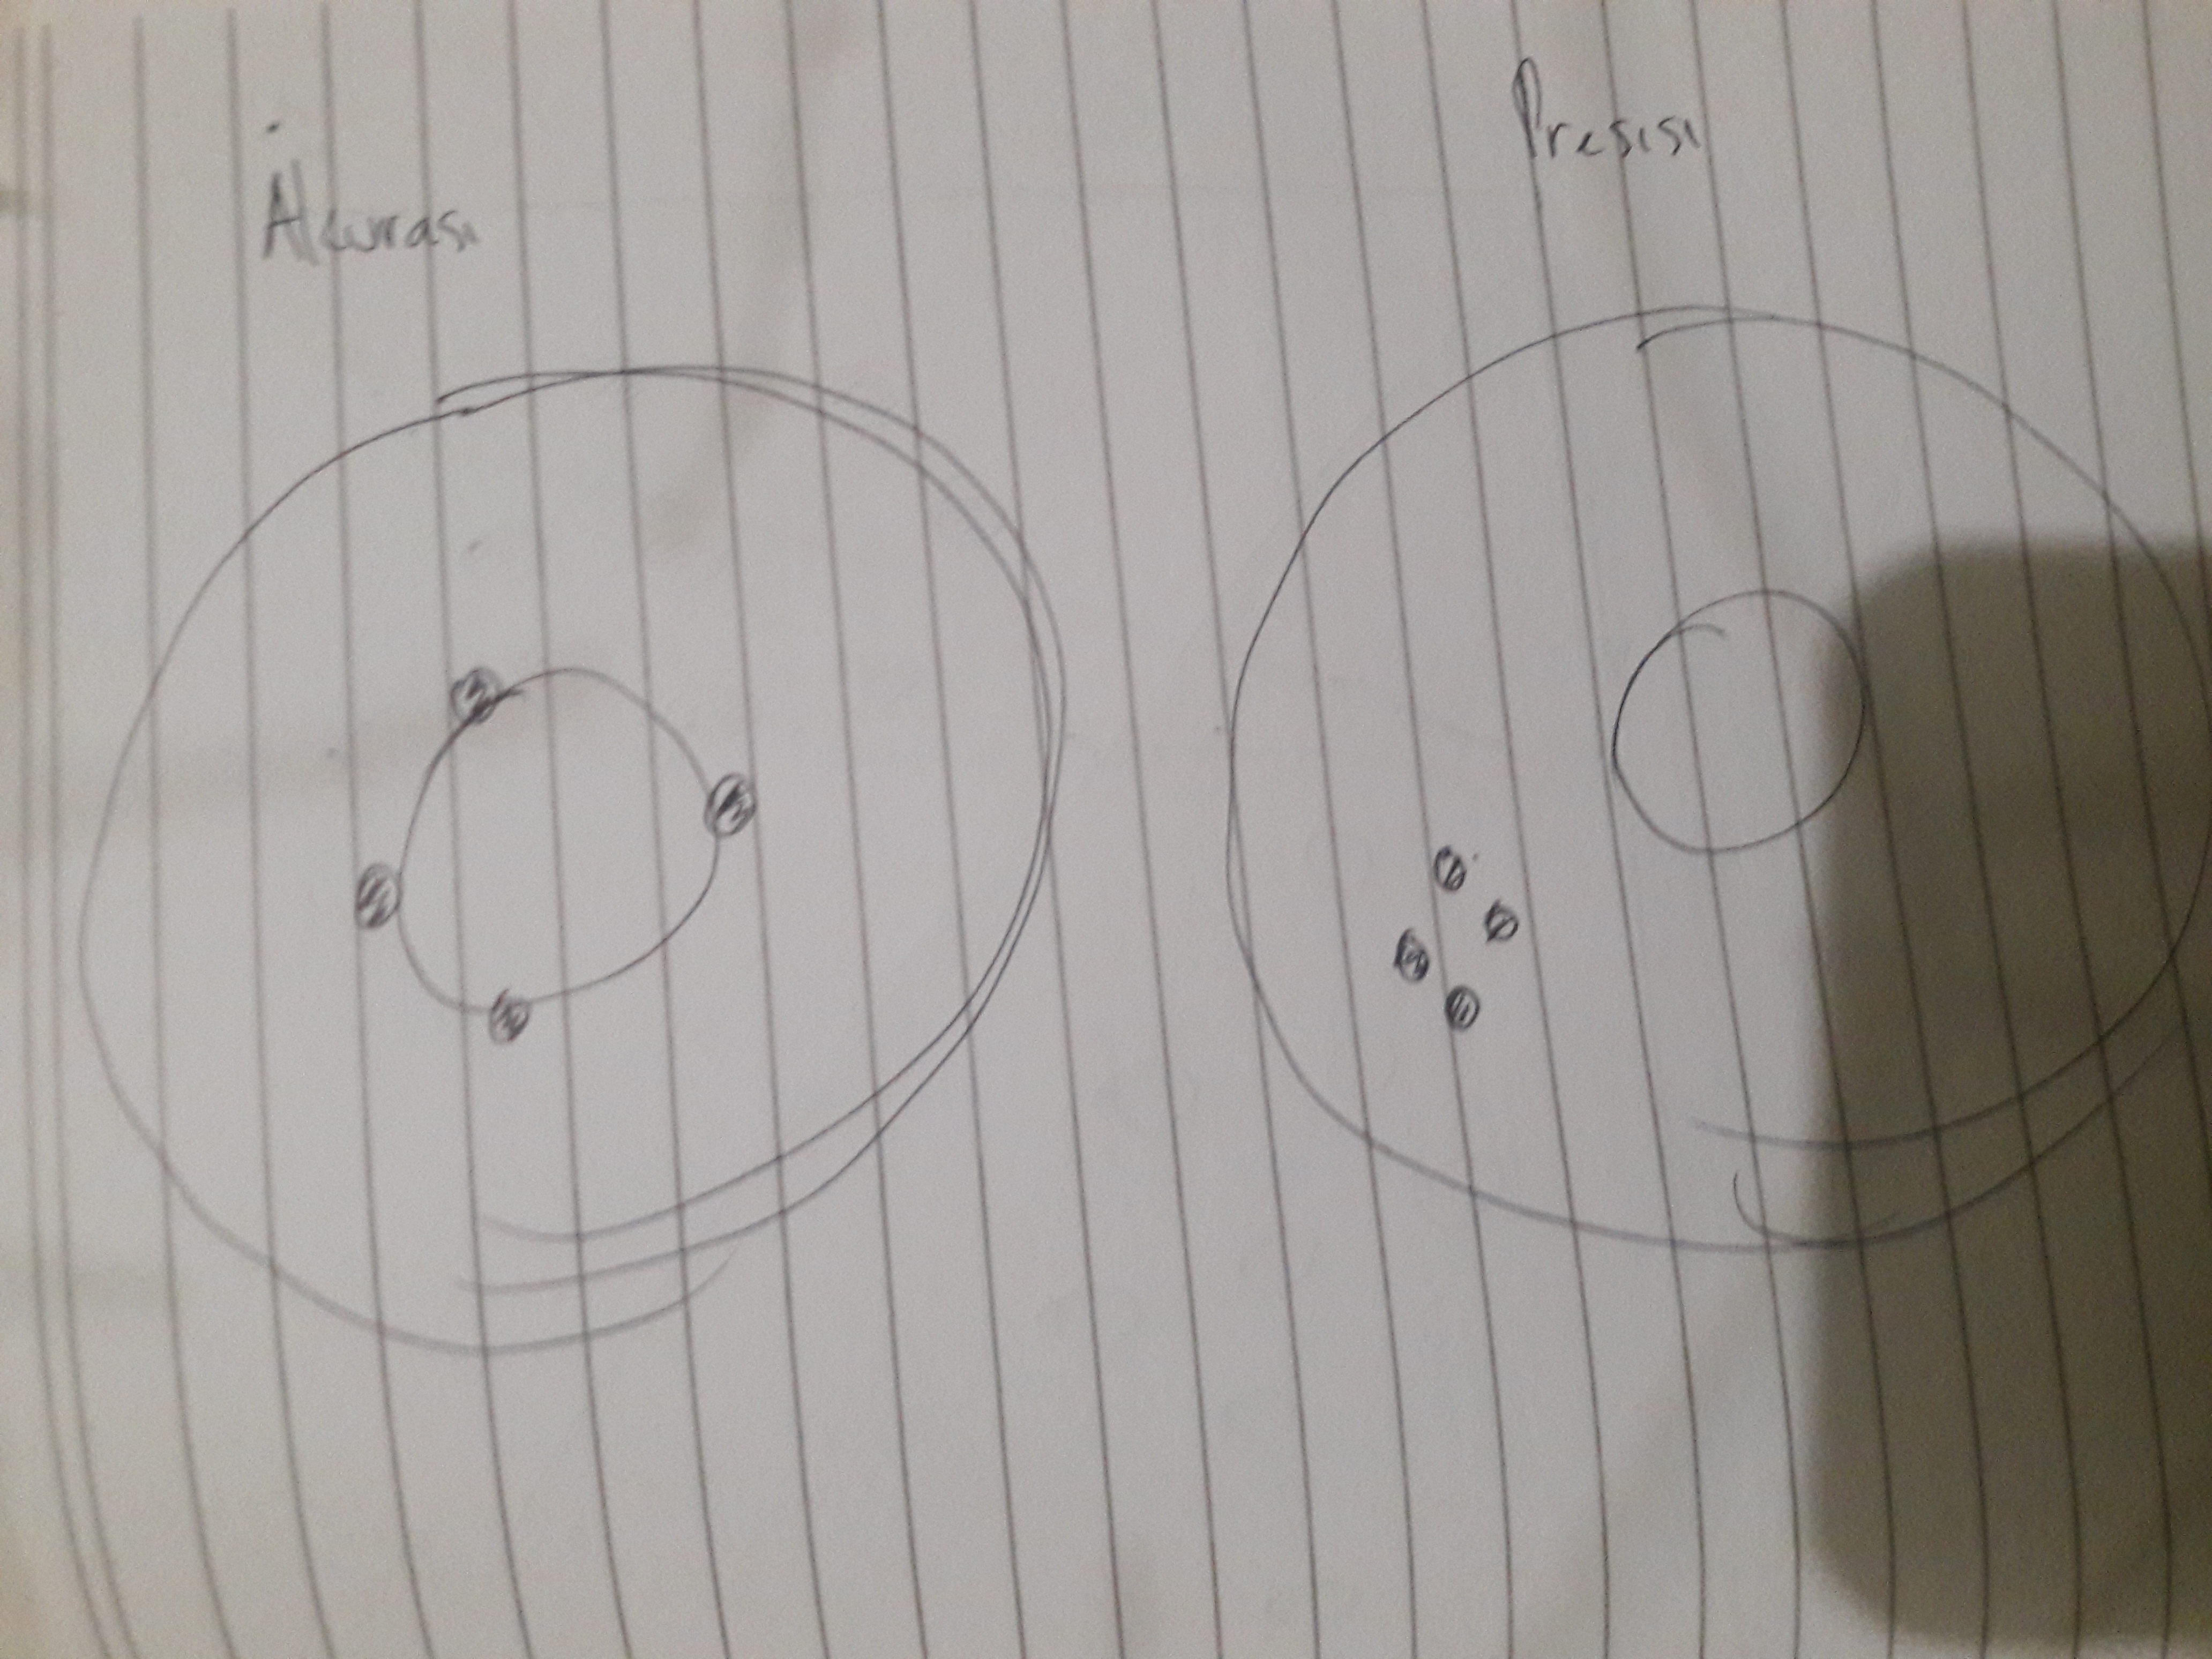 Akurasi
Presisi